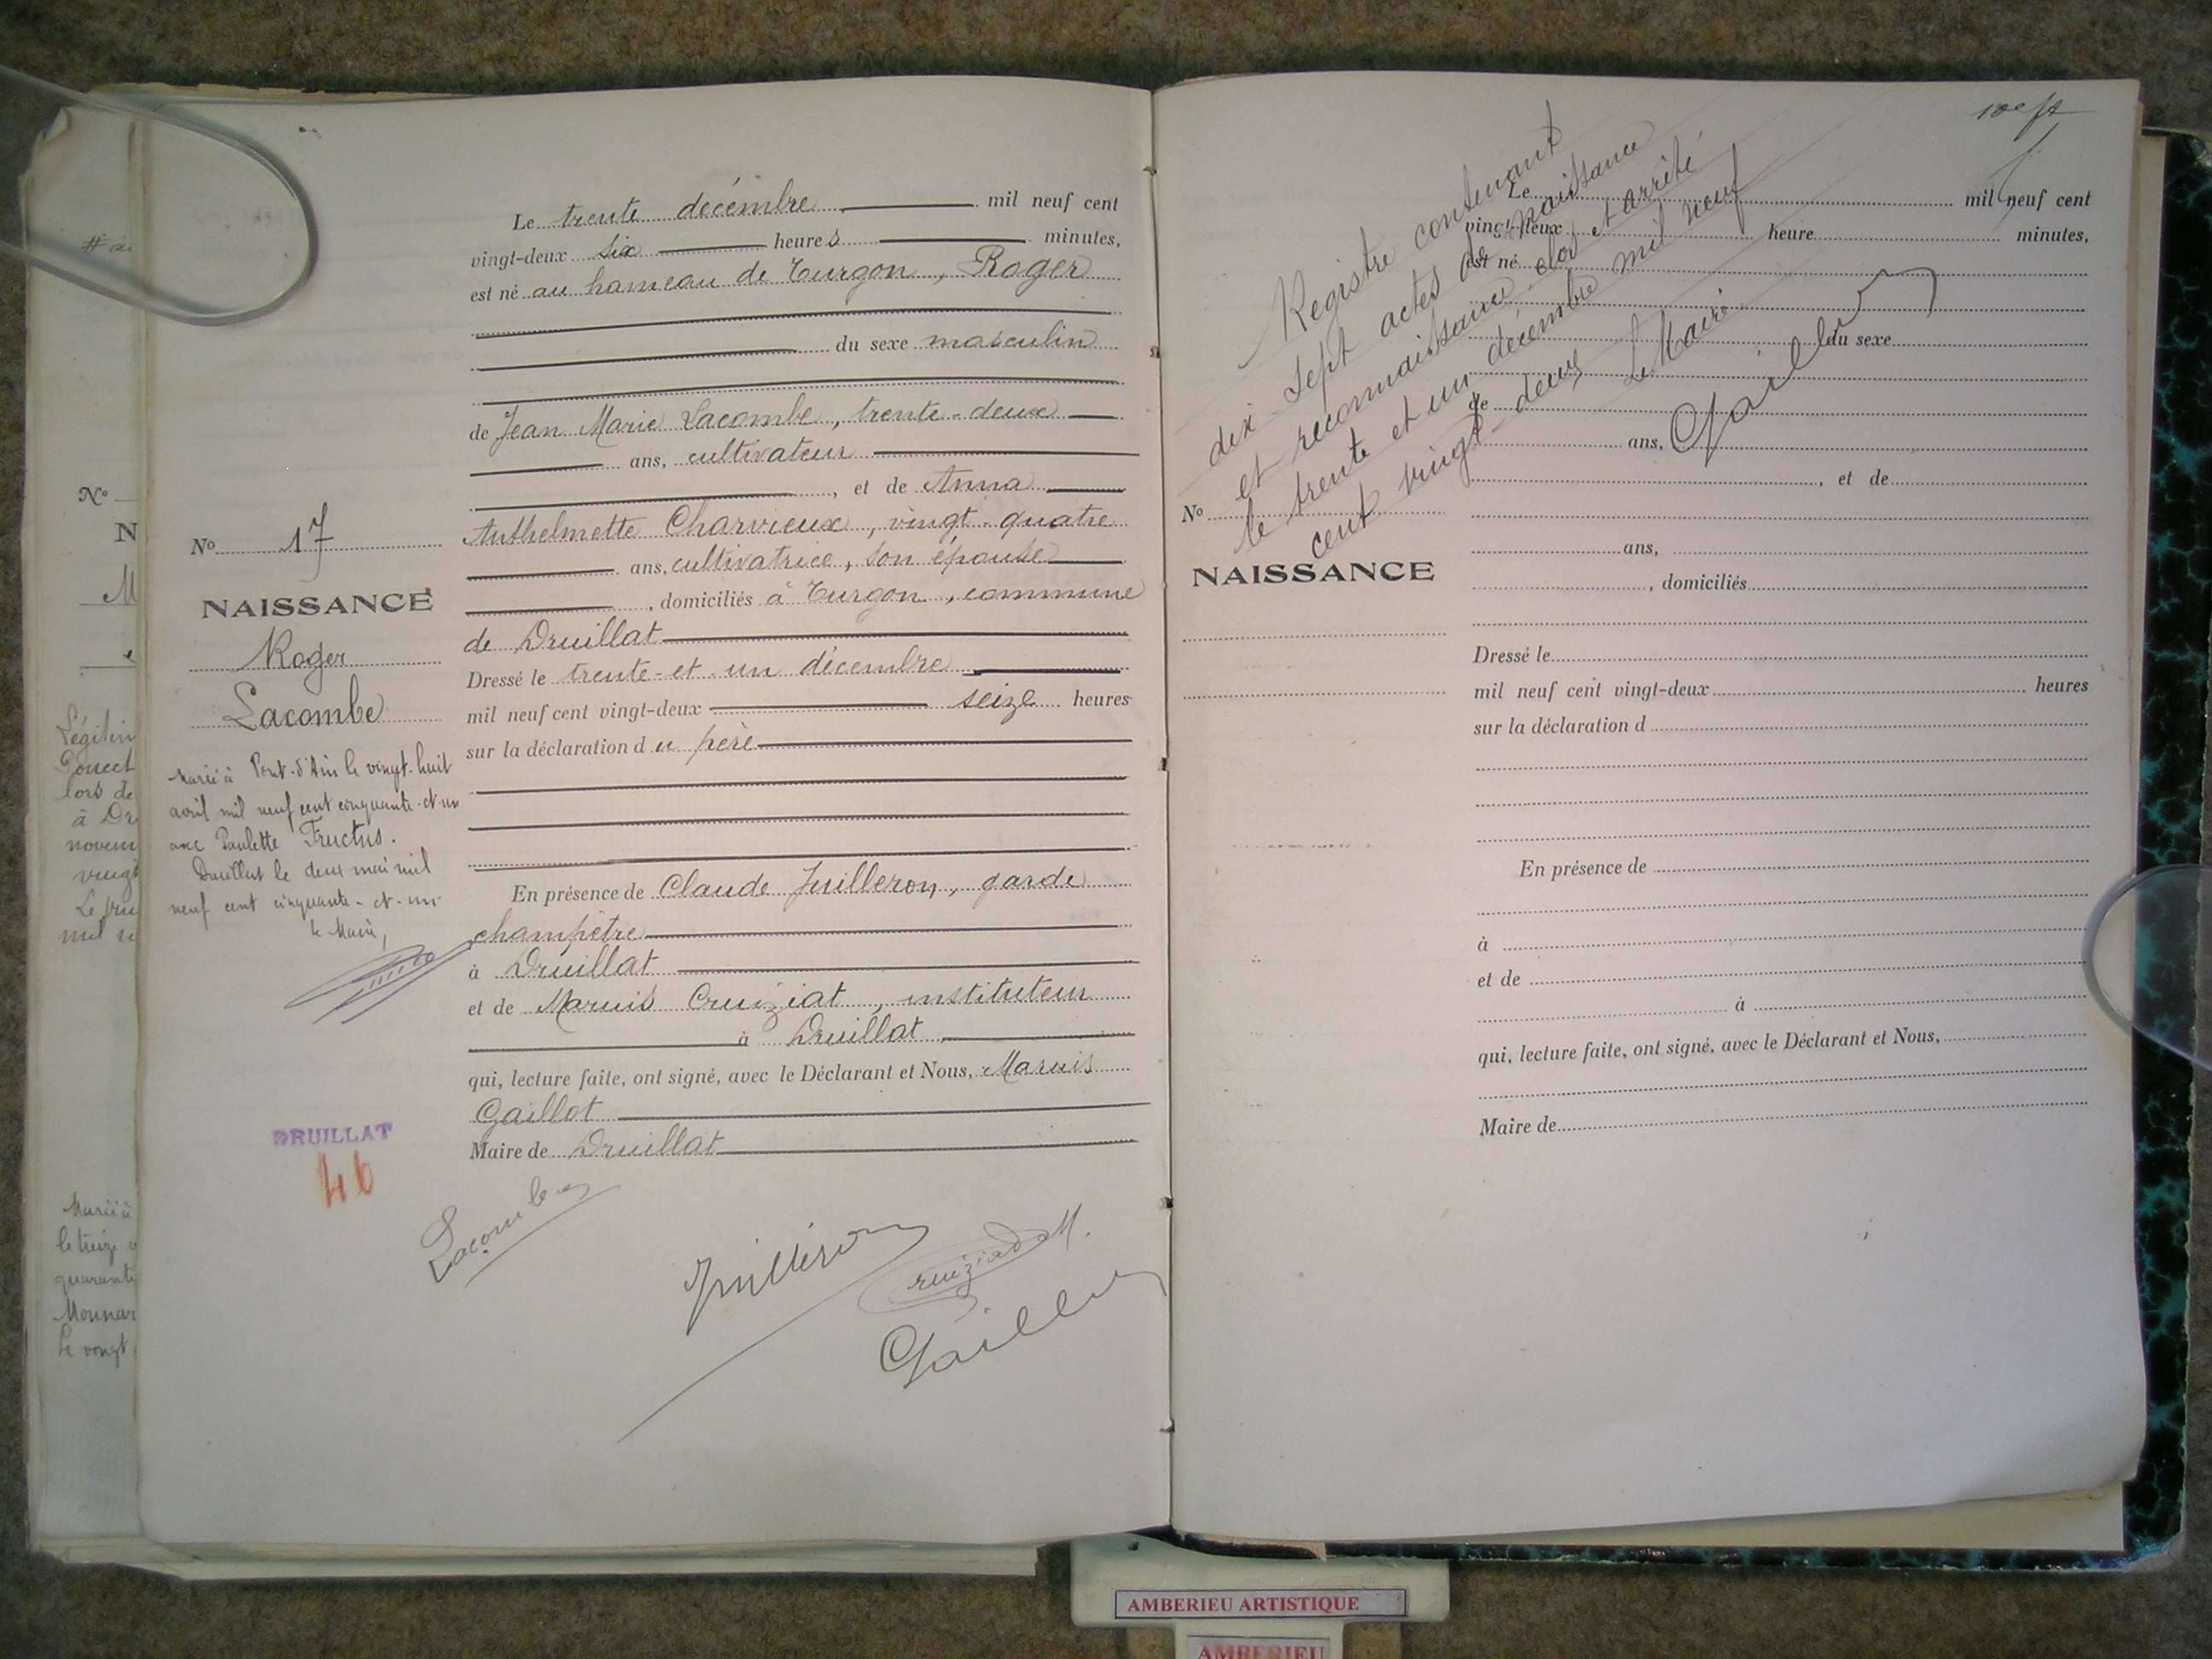 Le trente décembre mil neuf cent
vingt-deux six heures minutes,
est né au hameau de Turgon, Roger
du sexe masculin
de Jean Marie Lacombe, trente-deux
ans, cultivateur
, et de Anna
Anthelmette Charvieux, vingt-quatre
ans, cultivatrice, son épouse
, domiciliés à Turgon, commune
de Druillat
Dressé le trente-et-un décembre
mil neuf cent vingt-deux seize heures
sur la déclaration du père
En présence de Claude Juilleron, garde
champêtre
à Druillat
et de Marius Cruiziat, instituteur
à Druillat
qui, lecture faite, ont signé, avec le Déclarant et Nous, Marius
Gaillot
Maire de Druillat
Lacombe
Juilleron
Cruiziat M.
Gaillot
No 17
NAISSANCE
Roger
Lacombe
Marié à Pont-d'Ain le vingt-huit
avril mil neuf cent cinquante-et-un
avec Paulette Fructus.
Druillat le deux mai mil
neuf cent cinquante-et-un
le Maire,
DRUILLAT
46
No
N
M
Légitim
lors de
à Dr
novem
vingt
mil n
Marié à
le treize
quarante
Le vingt
Registre contenant
dix-sept actes de naissance
et reconnaissance clos et arrêté
le trente et un décembre mil neuf
cent vingt-deux
Le Maire
Gaillot
Le mil neuf cent
vingt-deux heure minutes,
est né
du sexe
de
ans,
, et de
ans,
, domiciliés
No
NAISSANCE
Dressé le
mil neuf cent vingt-deux heures
sur la déclaration d
En présence de
à
et de
à
qui, lecture faite, ont signé, avec le Déclarant et Nous,
Maire de
AMBERIEU ARTISTIQUE
AMBERIEU